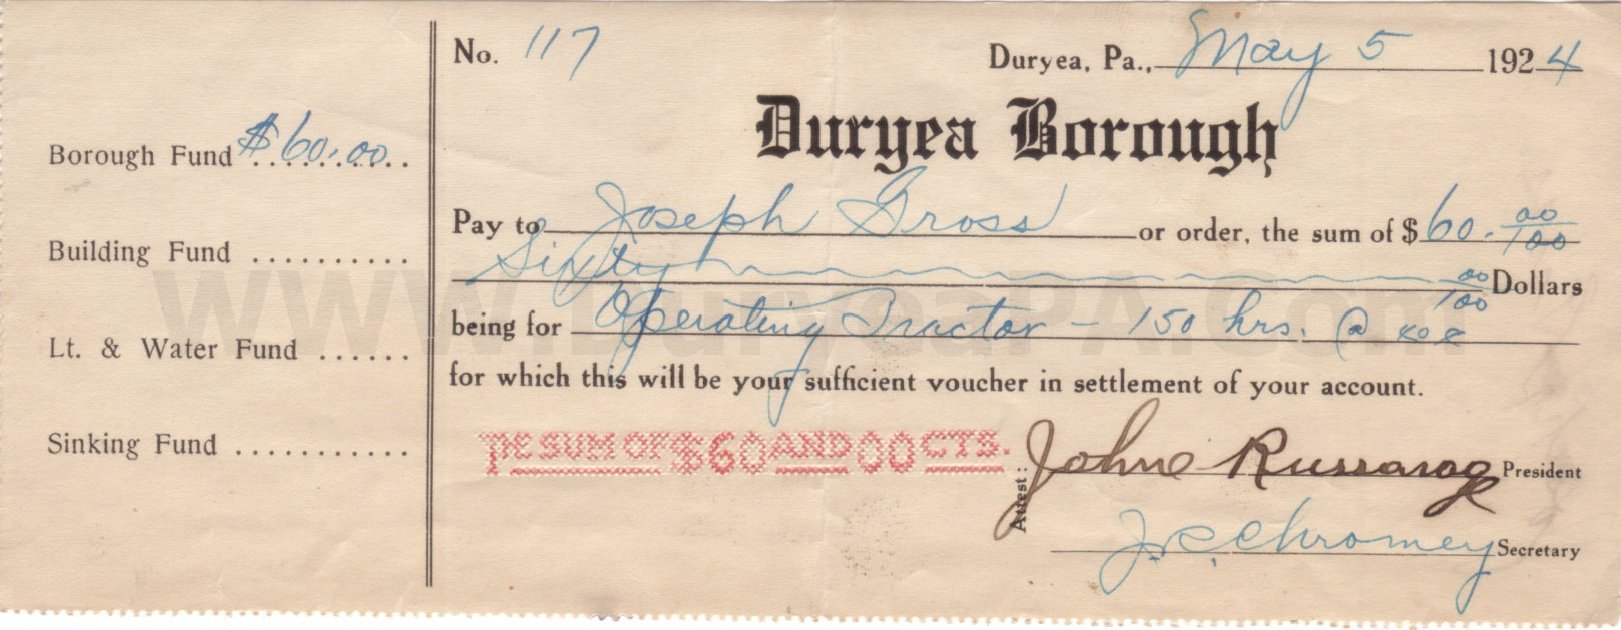 No. 117
Duryea, Pa., May 5 1924
Duryea Borough
Borough Fund $60.00
Building Fund ..........
Lt. & Water Fund ......
Sinking Fund ...........
Pay to Joseph Gross or order, the sum of $ 60. 00/100
Sixty 00/100 Dollars
being for Operating Tractor - 150 hrs. @
for which this will be your sufficient voucher in settlement of your account.
THE SUM OF $60 AND 00 CTS.
Attest:
President
Chromey Secretary
www.DuryeaPA.com